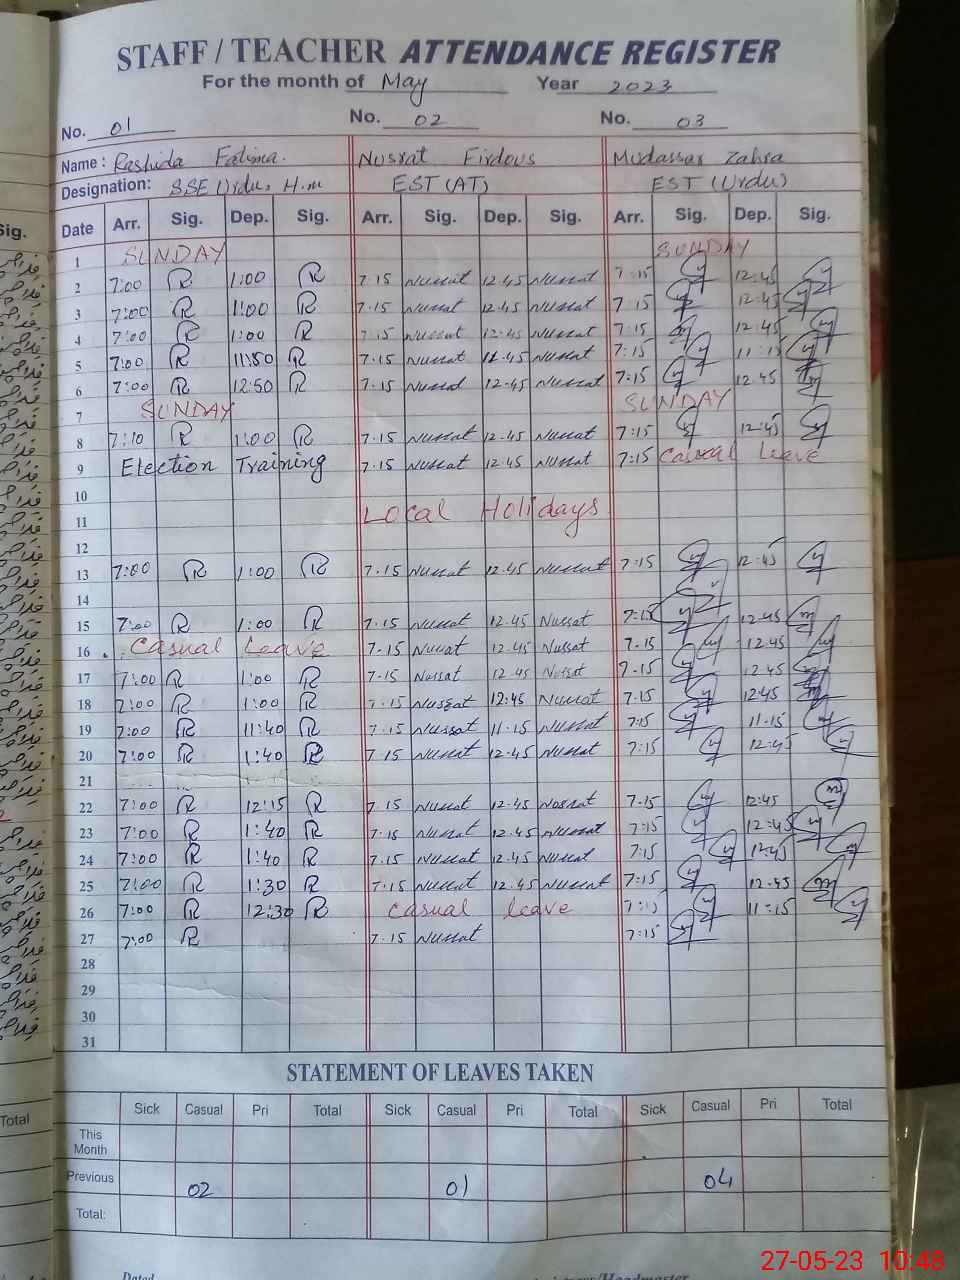 STAFF / TEACHER ATTENDANCE REGISTER
For the month of May Year 2023
No. 01 No. 02 No. 03
Name: Rashida Fatima. Nusrat Firdous Mudassar Zahra
Designation: SSE Urdu, H.m EST (AT) EST (Urdu)
Date Arr. Sig. Dep. Sig. Arr. Sig. Dep. Sig. Arr. Sig. Dep. Sig.
1 SUNDAY SUNDAY
2 7:00 R 1:00 R 7.15 Nussat 12.45 Nussat 7:15 12:45
3 7:00 R 1:00 R 7.15 Nussat 12.45 Nussat 7:15 12:45
4 7:00 R 1:00 R 7.15 Nussat 12.45 Nussat 7:15 12:45
5 7:00 R 11:50 R 7.15 Nussat 11.45 Nussat 7:15 11:15
6 7:00 R 12:50 R 7.15 Nussat 12.45 Nussat 7:15 12.45
7 SUNDAY SUNDAY
8 7:10 R 1:00 R 7.15 Nussat 12.45 Nussat 7:15 12:45
9 Election Training 7.15 Nussat 12.45 Nussat 7:15 Casual Leave
10
11 Local Holidays
12
13 7:00 R 1:00 R 7.15 Nussat 12.45 Nussat 7:15 12:45
14
15 7:00 R 1:00 R 7.15 Nussat 12.45 Nussat 7:15 12.45
16 Casual Leave 7.15 Nussat 12.45 Nussat 7.15 12.45
17 7:00 R 1:00 R 7.15 Nussat 12.45 Nussat 7.15 12.45
18 7:00 R 1:00 R 7.15 Nussat 12:45 Nussat 7.15 12:45
19 7:00 R 11:40 R 7.15 Nussat 11.15 Nussat 7:15 11.15
20 7:00 R 1:40 R 7.15 Nussat 12.45 Nussat 7:15 12:45
21
22 7:00 R 12:15 R 7.15 Nussat 12.45 Nossat 7.15 12:45
23 7:00 R 1:40 R 7.15 Nussat 12.45 Nussat 7:15 12:45
24 7:00 R 1:40 R 7.15 Nussat 12.45 Nussat 7:15 12:45
25 7:00 R 1:30 R 7.15 Nussat 12.45 Nussat 7:15 12.45
26 7:00 R 12:30 R Casual leave 11:15
27 7:00 R 7.15 Nussat 7:15
28
29
30
31
STATEMENT OF LEAVES TAKEN
Sick Casual Pri Total Sick Casual Pri Total Sick Casual Pri Total
This Month
Previous 02 01 04
Total:
Dated
27-05-23 10:48